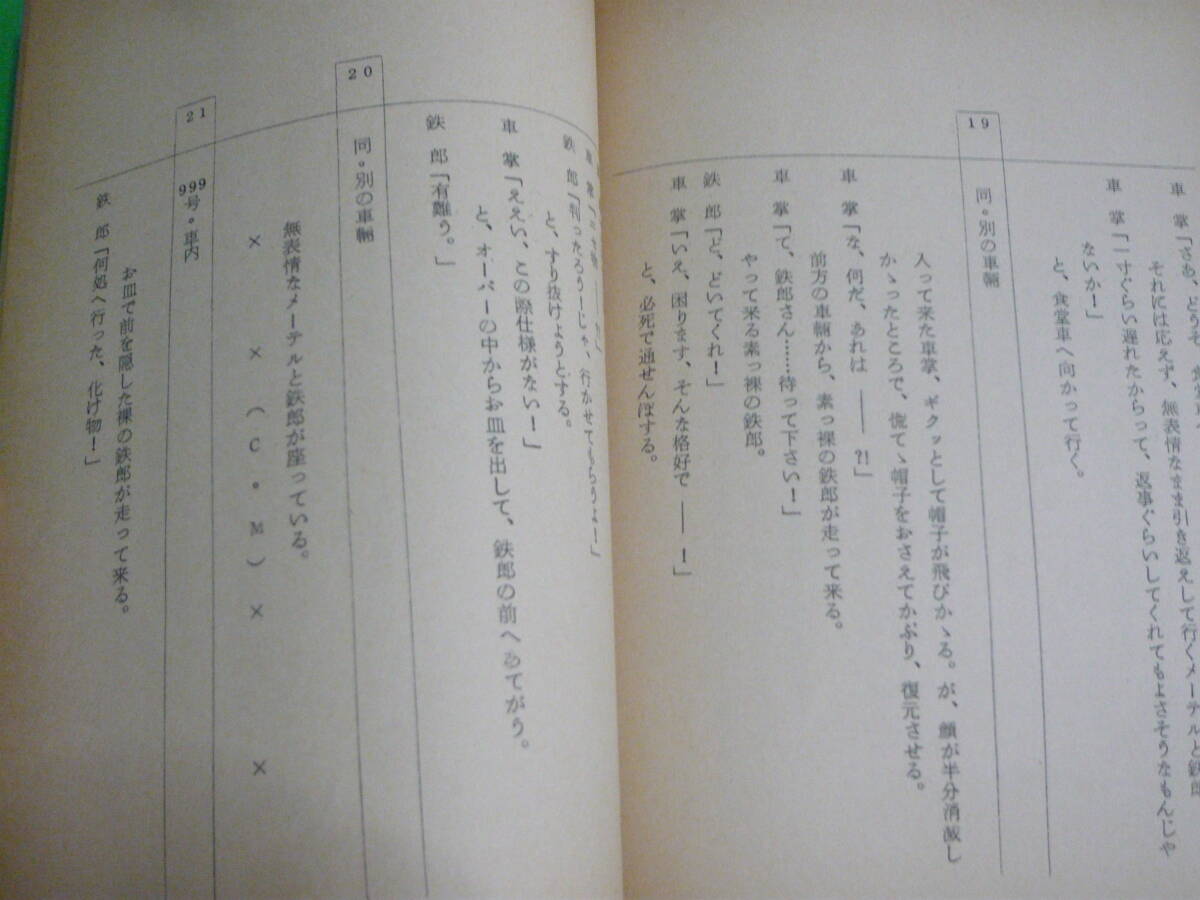 車掌「さあ、どうぞ
それには応えず、無表情なまま引き返えして行くメーテルと鉄郎
車掌「一寸ぐらい遅れたからって、返事ぐらいしてくれてもよさそうなもんじゃ
ないか！」
と、食堂車へ向かって行く。
19 同。別の車輛
入って来た車掌、ギクッとして帽子が飛びかゝる。が、顔が半分消滅し
かゝったところで、慌てゝ帽子をおさえてかぶり、復元させる。
車掌「な、何だ、あれは――?!」
前方の車輛から、素っ裸の鉄郎が走って来る。
やって来る素っ裸の鉄郎。
車掌「て、鉄郎さん……待って下さい！」
鉄郎「ど、どいてくれ！」
車掌「いえ、困ります、そんな格好で――！」
と、必死で通せんぼする。
鉄郎「判ったるうーじゃ、行かせてもらうよー」
と、すり抜けようとする。
車掌「ええい、この際仕様がない！」
と、オーバーの中からお皿を出して、鉄郎の前へあてがう。
鉄郎「有難う。」
20 同。別の車輛
無表情なメーテルと鉄郎が座っている。
× × (C。M) × ×
21 999号。車内
お皿で前を隠した裸の鉄郎が走って来る。
鉄郎「何処へ行った、化け物！」